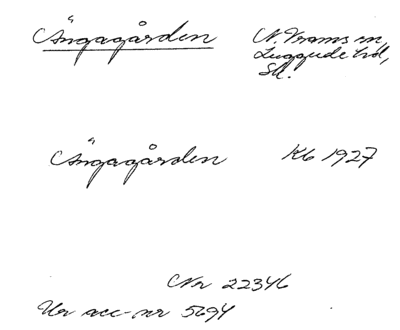 Ängagården N. Vrams sn,
Luggude hd,
Sk.
Ängagården Kb 1927
Nr 22346
Ur acc-nr 5694